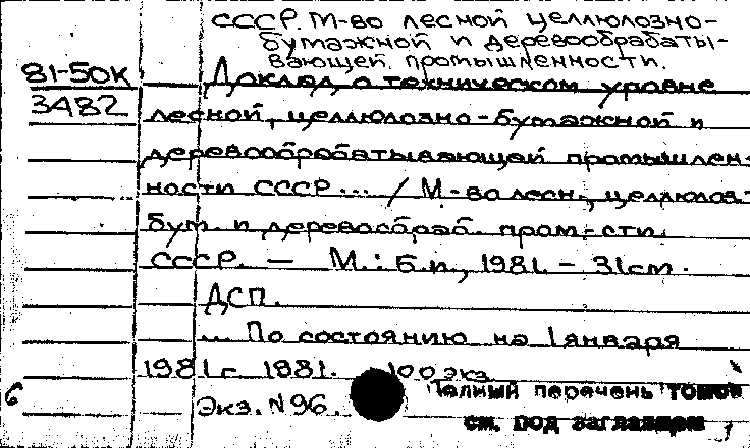 СССР. М-во лесной целлюлозно-
бумажной и деревообрабаты-
вающей промышленности.
81-50К
3А82
Доклад о техническом уровне
лесной, целлюлозно-бумажной и
деревообрабатывающей промышлен-
ности СССР... / М-во лесн., целлюлоз.
бум. и деревообраб. пром-сти.
СССР. — М.: Б.и., 1981. - 31см.
ДСП.
... По состоянию на 1 января
1981 г. 1981. 100 экз.
Экз. N 96.
Полный перечень томов
см. под заглавием
6